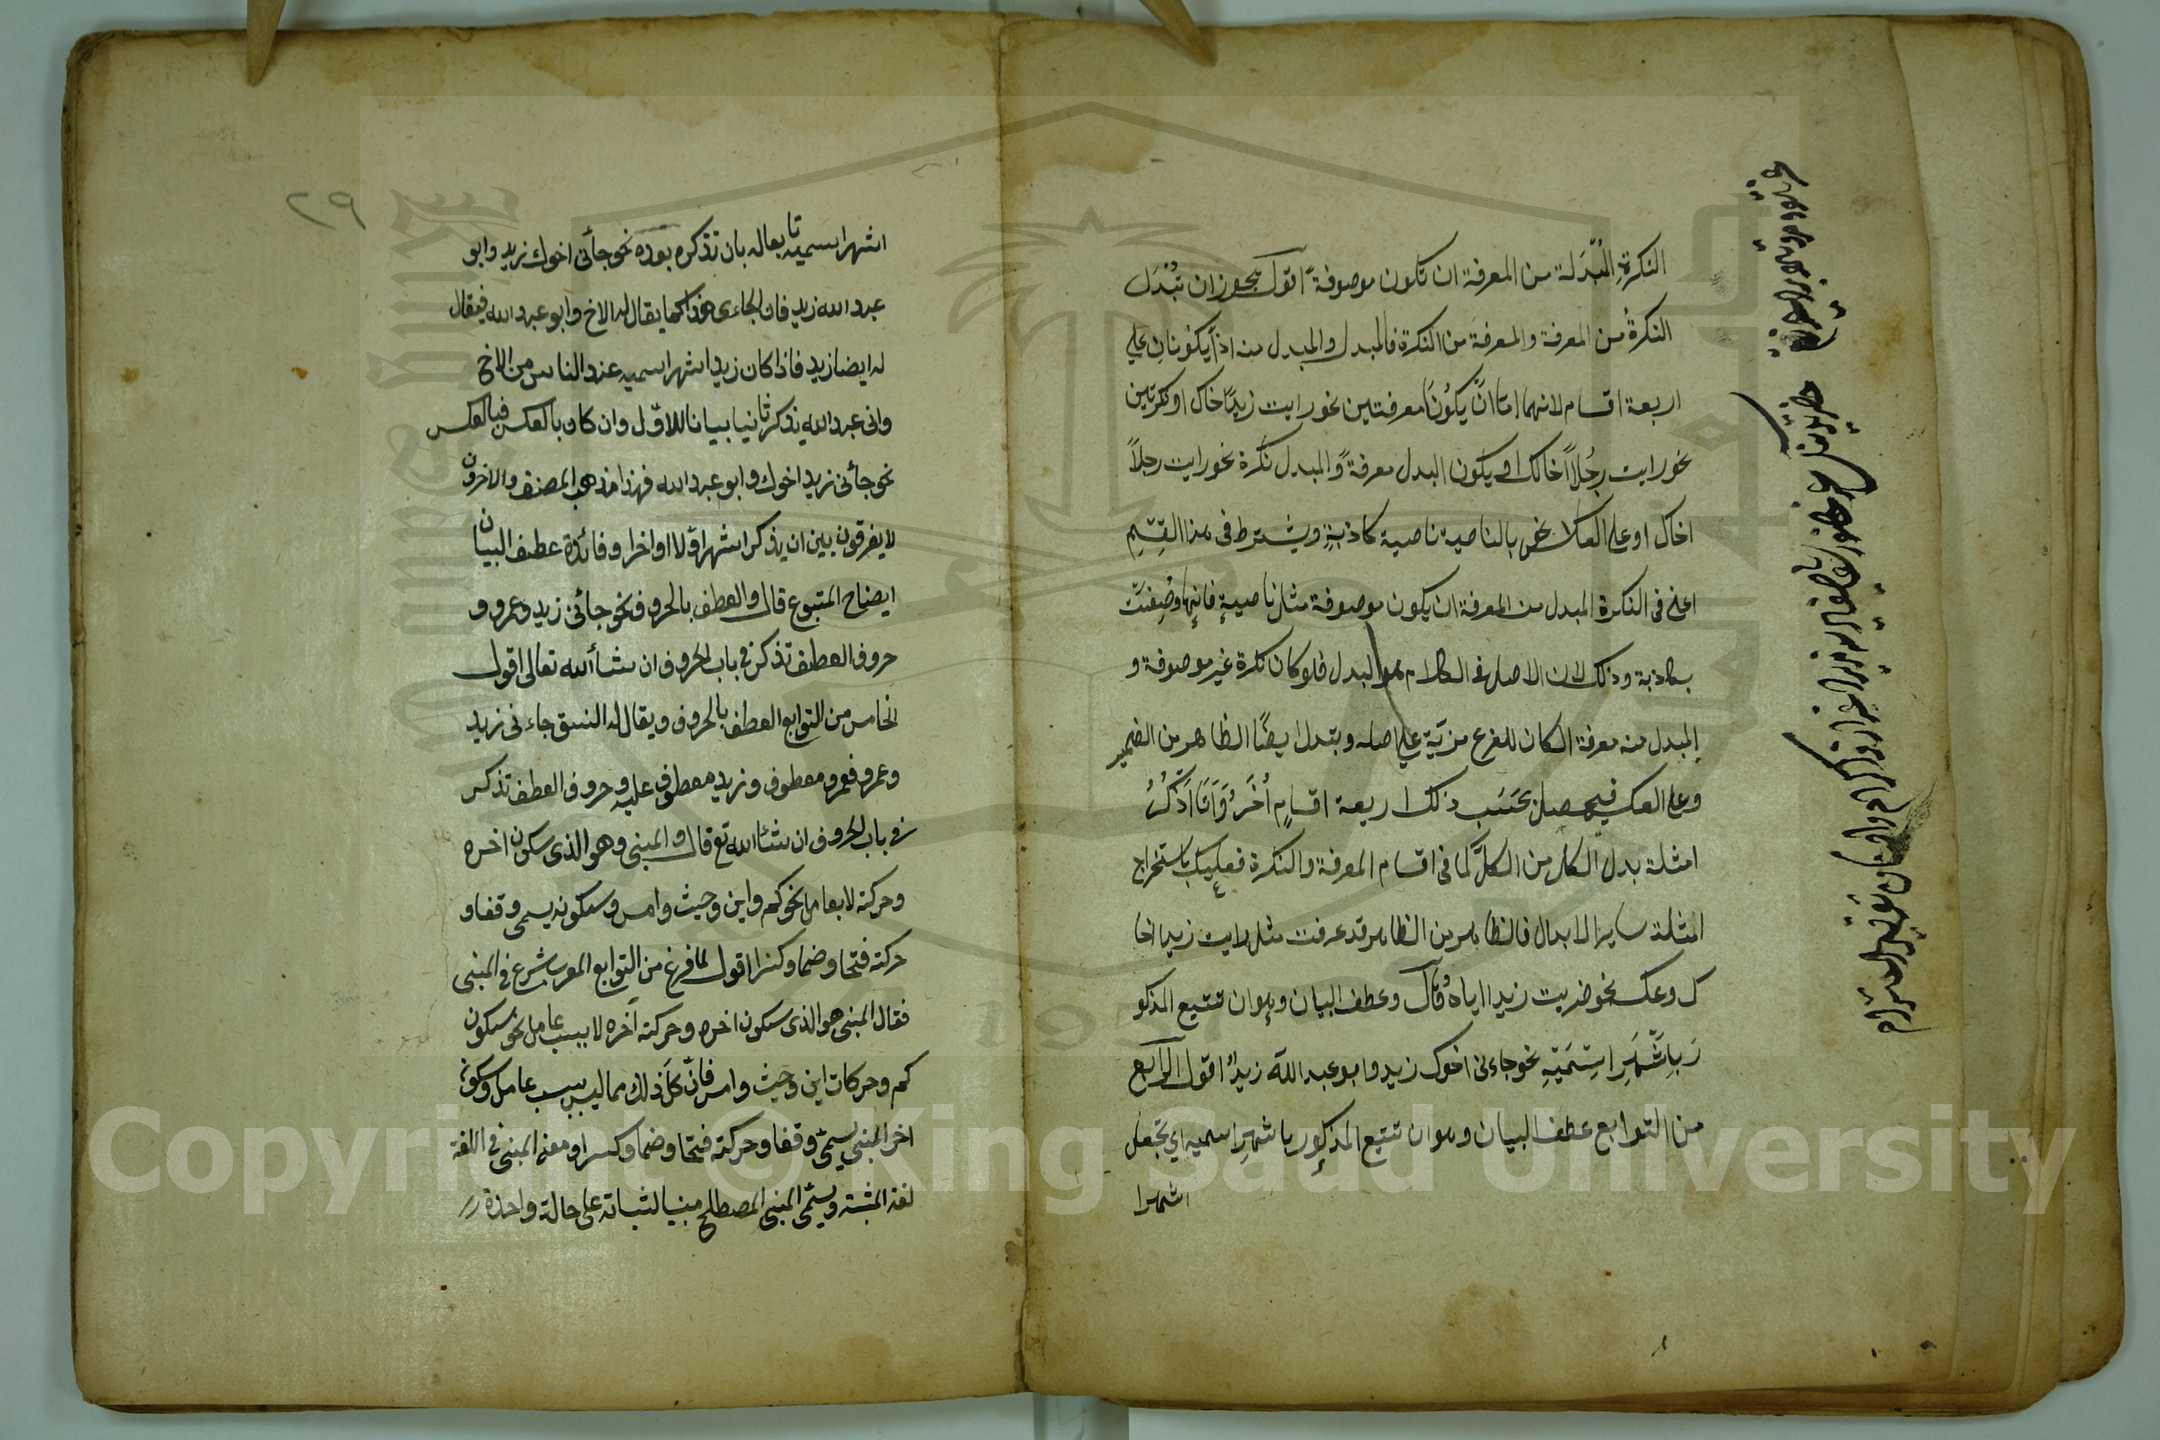 النكرةِ المُبْدَلة من المعرفة ان تكون موصوفةً اقول يجوز ان تُبْدَل
النكرةُ من المعرفة والمعرفة من النكرة فالمبدل والمبدل منه اذاً يكونان على
اربعة اقسام لانهما امّا انْ يكُونَا معرفتين نحو رايت زيدًا اخاك او نكرتين
نحو رايت رجُلاً اخا لك او يكون البدل معرفةً والمبدل نكرة نحو رايت رجلاً
اخاك او على العكس نحو بالناصية ناصية كاذبةٍ ويشترط فى هذا القِسِم
اعنى فى النكرة المبدل من المعرفة ان يكون موصوفة مثل ناصيةٍ فانها وُصِفتْ
بكاذبة وذلك لان الاصل فى الكلام هو البدل فلو كان نكرة غير موصوفة و
المبدل منه معرفة لكان للفرع مزيّة على اصله ويبدل ايضًا الظاهر من الضمير
وعلى العكس فيحصل بحَسَب ذلك اربعة اقسامٍ أُخَرُ وَاَنَا اَذْكُرُ
امثلة بدل الكل من الكلّ كما فى اقسام المعرفة والنكرة فعليك باستخراج
امثلة ساير الابدال فالظاهر من الظاهر قد عرفت مثل رايت زيدا اخا
ك وعكسه نحو ضربت زيدا اياه قال وعطف البيان وهو ان تتبع المذكو
رَ بِاَشْهَرِ اسْمَيْهِ نحو جاءنى اخوك زيد وابو عبد الله زيدٌ اقول الرابع
من التوابع عطف البيان وهو ان تتبع المذكور باشهرِ اسميه اي تجعل
اشهرا
اشهر اسميه تابعا له بان تذكره بعده نحو جائى اخوك زيد وابو
عبد الله زيد فان الجاءى هذا كما يقال له الاخ وابو عبد الله فيقال
له ايضا زيد فاذا كان زيد اشهر اسميه عند الناس من الاخ
وابى عبد الله يذكر ثانيا بيانا للاوّل وان كان بالعكس فبالعكس
نحو جائنى زيد اخوك وابو عبد الله فهذا مذهب المصنف والاخرون
لا يفرقون بين ان يذكر اشهر اوّلا او اخرا وفائدة عطف البيان
ايضاح المتبوع قال والعطف بالحروف نحو جائنى زيد وعمرو و
حروف العطف تذكر فى باب الحروف ان شاء الله تعالى اقول
الخامس من التوابع العطف بالحروف ويقال له النسق جاءنى زيد
وعمرو فعمرو معطوف وزيد معطوف عليه وحروف العطف تذكر
فى باب الحروف ان شاء الله تع قال والمبنى وهو الذى سكون اخره
وحركته لا بعامل نحو كم واين وحيث وامس وسكونه يسمى وقفا و
حركته فتحا وضما وكسرا اقول لما فرغ من التوابع المعرب شرع فى المبنى
فقال المبنى هو الذى سكون اخره وحركة آخره لا بسبب عامل نحو سكون
كم وحركات اين وحيث وامس فانّ كل ذلك مما ليس بسبب عامل وسكون
اخر المبنى يسمّى وقفا وحركته فتحا وضما وكسرا ومعنى المبنى فى اللغة
لغة المثبتة ويسمّى المبنى المصطلح مبنيا لثباته على حالة واحدة
٢٩
Copyright © King Saud University